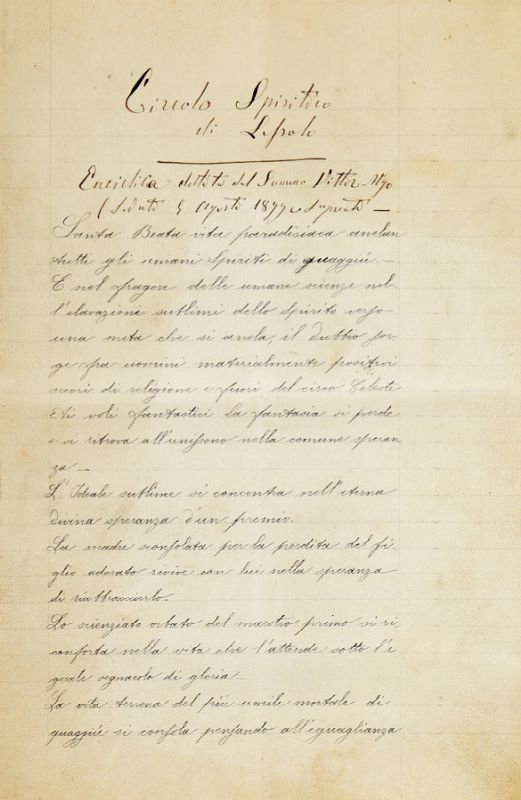 Circolo Spiritico
di
Enciclica dettata dal Sommo Vittor Ugo
(Seduta 5 Agosto 1899
Santa Beata vita paradisiaca anelan
tutti gli umani spiriti di quaggiù.—
E nel fragore delle umane scienze nel
l'elavazione sublimi dello spirito verso
una meta che si anela, il dubbio sor-
ge fra uomini materialmente positivi
scevri di religione e fuori del circo Celeste
Ai voli fantastici la fantasia si perde
e si ritrova all'unissono nella comune speran
za—
L'Ideale sublime si concentra nell'eterna
divina speranza d'un premio.
La madre sconsolata per la perdita del fi-
glio adorato rivive con lui nella speranza
di riabbracciarlo.
Lo scienziato orbato del maestro primo si ri
conforta nella vita che l'attende sotto l'e-
guale segnacolo di gloria—
La vita terrena del più umile mortale di
quaggiù si consola pensando all'eguaglianza